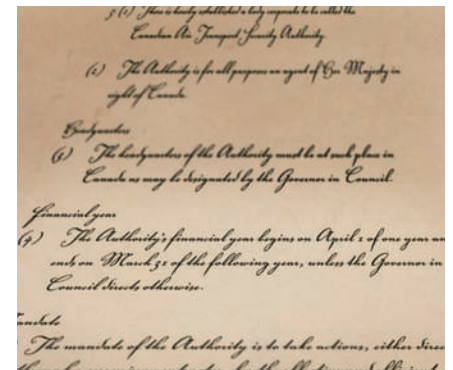 5 (1) There is hereby established a body corporate to be called the
Canadian Air Transport Security Authority.
(2) The Authority is for all purposes an agent of Her Majesty in
right of Canada.
Headquarters
(3) The headquarters of the Authority must be at such place in
Canada as may be designated by the Governor in Council.
Financial year
(4) The Authority's financial year begins on April 1 of one year an
ends on March 31 of the following year, unless the Governor in
Council directs otherwise.
andate
The mandate of the Authority is to take actions, either direc